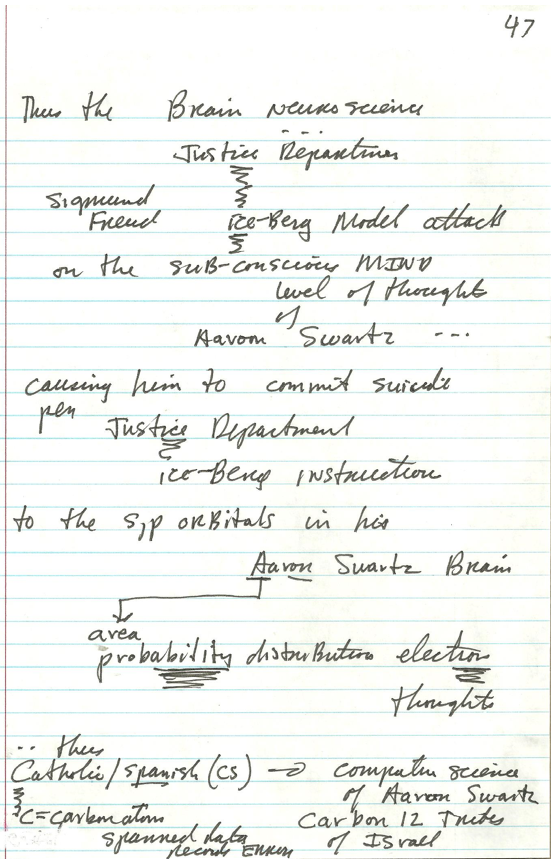 47
Thus the Brain neuroscience
Justice Departmen
Sigmund
Freud ice-Berg Model attack
on the suB-conscious MIND
level of thoughts
of
Aaron Swartz ---
causing him to commit suicide
per
Justice Department
ice-Berg instruction
to the s,p orBitals in his
Aaron Swartz Brain
area
probability distribution electron
thoughts
thus
Catholic/spanish (CS) → computer science
of Aaron Swartz
C=carbon atom Carbon 12 Tribes
spanned data of Israel
records